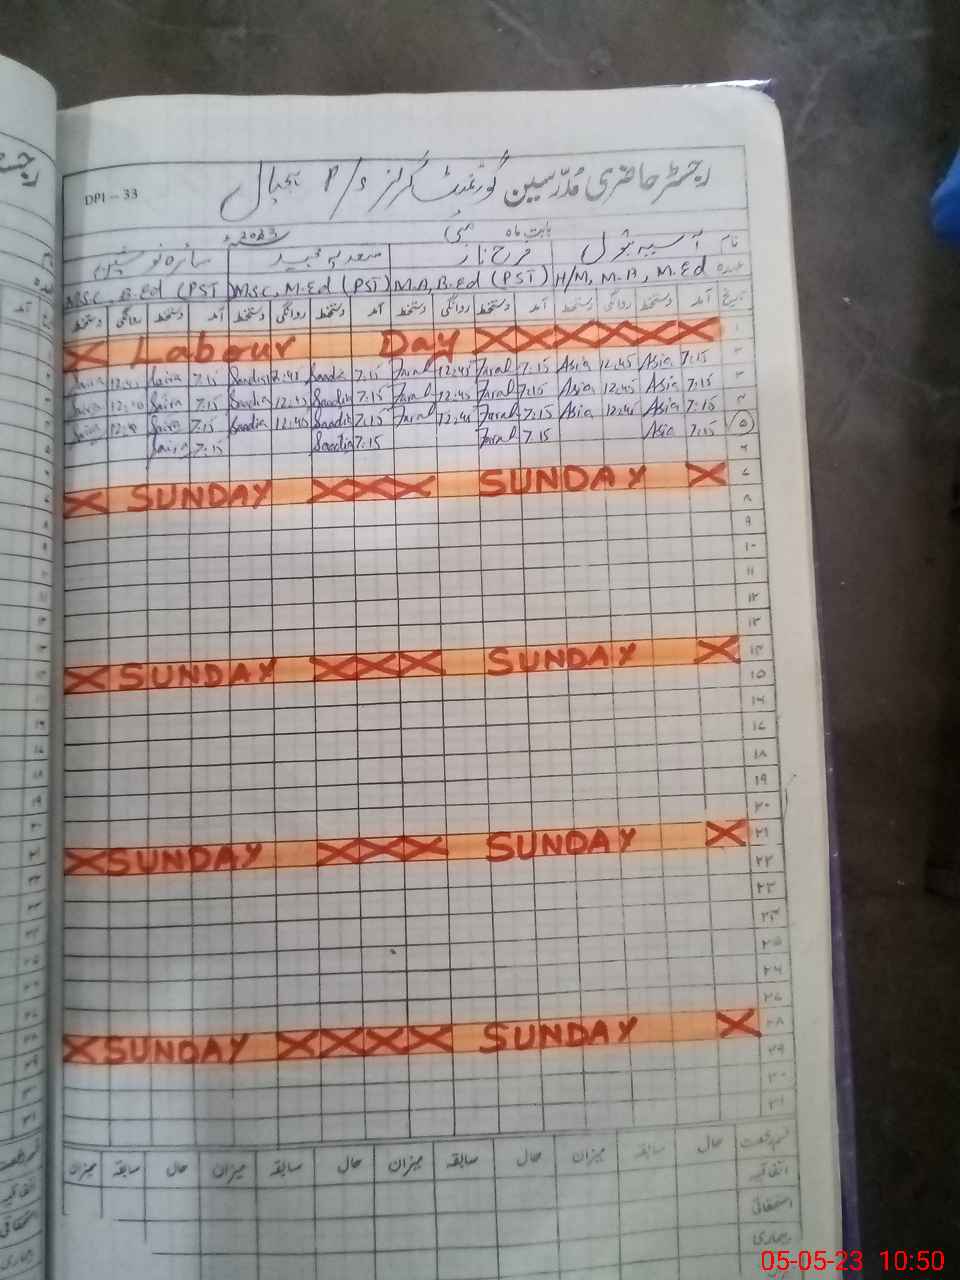 DPI – 33
رجسٹر حاضری مُدرّسین گورنمنٹ گرلز P/S
بابت ماہ مئی 2023
نام آسیہ بتول فرح ناز سعدیہ مجید
عہدہ H/M, M.A, M.Ed M.A, B.Ed (PST) M.SC, M.Ed (PST) M.SC, B.Ed (PST)
تاریخ آمد دستخط روانگی دستخط آمد دستخط روانگی دستخط آمد دستخط روانگی دستخط آمد دستخط روانگی دستخط
۱ Labour Day
۲ 7:15 Asia 12:45 Asia 7:15 Farah 12:45 Farah 7:15 Saadia 12:45 Saadia 7:15 Saira 12:45 Saira
۳ 7:15 Asia 12:45 Asia 7:15 Farah 12:45 Farah 7:15 Saadia 12:45 Saadia 7:15 Saira 12:45 Saira
۴ 7:15 Asia 12:45 Asia 7:15 Farah 12:45 Farah 7:15 Saadia 12:45 Saadia 7:15 Saira 12:45 Saira
۵ 7:15 Asia 7:15 Farah 7:15 Saadia 7:15 Saira
۶
۷ SUNDAY SUNDAY
۸
۹
۱۰
۱۱
۱۲
۱۳
۱۴ SUNDAY SUNDAY
۱۵
۱۶
۱۷
۱۸
۱۹
۲۰
۲۱ SUNDAY SUNDAY
۲۲
۲۳
۲۴
۲۵
۲۶
۲۷
۲۸ SUNDAY SUNDAY
۲۹
۳۰
۳۱
قسم رخصت حال سابقہ میزان حال سابقہ میزان حال سابقہ میزان حال سابقہ میزان
اتفاقیہ
استحقاقی
بیماری
05-05-23 10:50